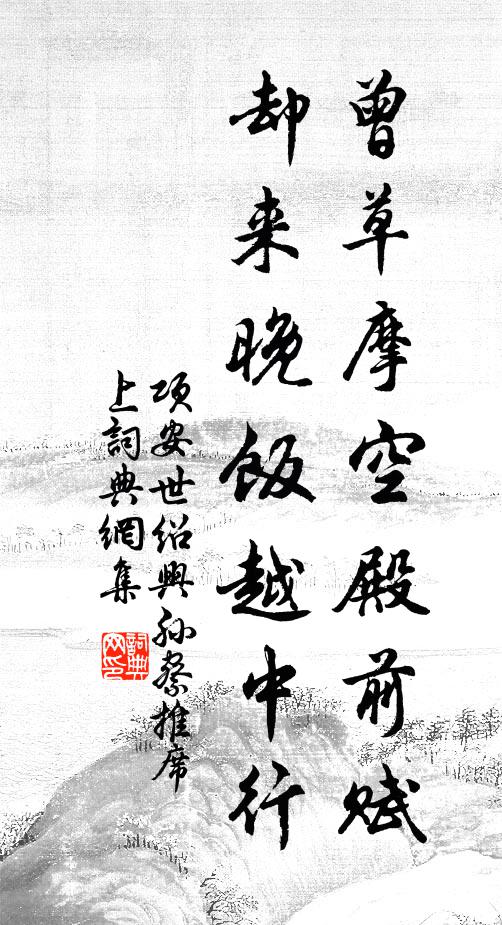 曾草摩空殿前赋
却来晚饭越中行
项安世绍兴孙察推席
上詞典網集
詞典
网印